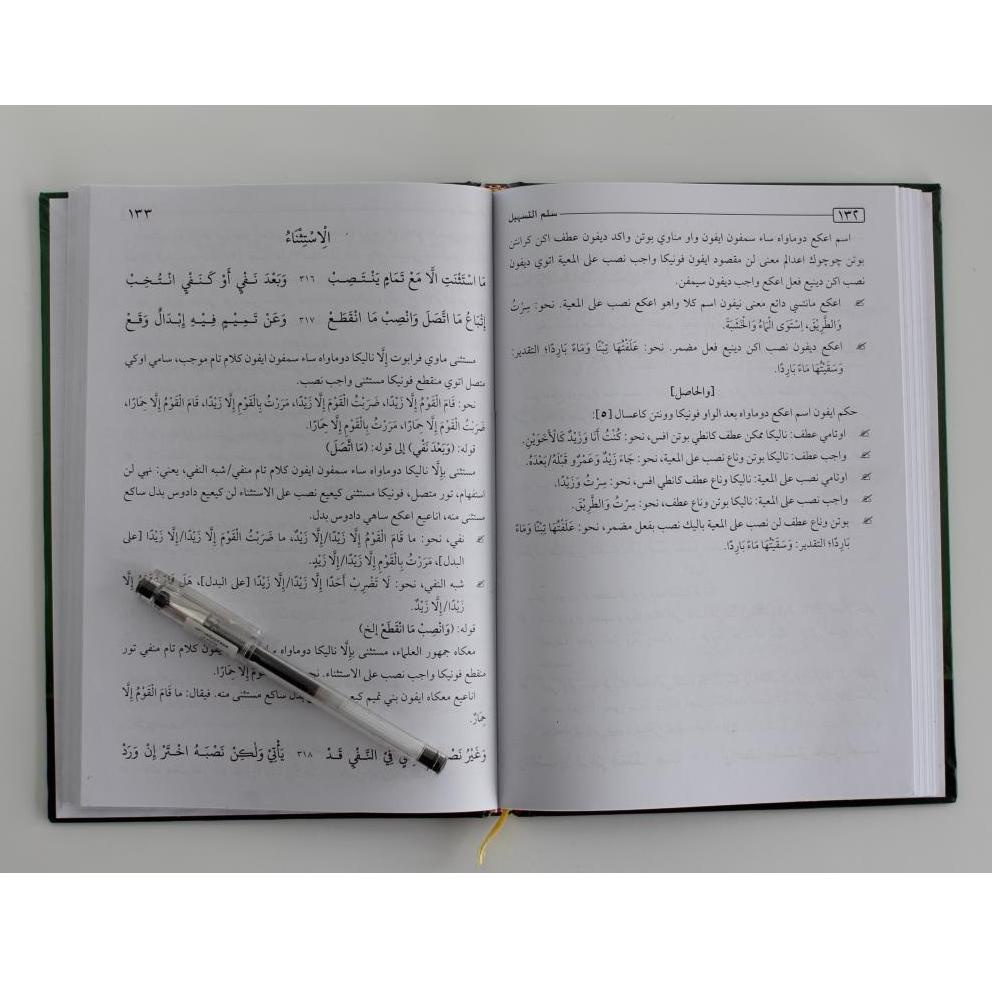 ١٣٢ سلم التسهيل
اسم اعكع دوماواه ساء سمفون ايفون واو مناوي بوتن واكد ديفون عطف اكن كرانتن
بوتن چوچوك اعدالم معنى لن مقصود ايفون فونيكا واجب نصب على المعية اتوي ديفون
نصب اكن دينيع فعل اعكع واجب ديفون سيمفن.
اعكع مانتسي دائع معنى نيفون اسم كلا واهو اعكع نصب على المعية. نحو: سِرْتُ
وَالطَّرِيْقَ، اِسْتَوَى الْمَاءُ وَالْخَشَبَةَ.
اعكع ديفون نصب اكن دينيع فعل مضمر. نحو: عَلَفْتُهَا تِبْنًا وَمَاءً بَارِدًا؛ التقدير:
وَسَقَيْتُهَا مَاءً بَارِدًا.
[والحاصل]
حكم ايفون اسم اعكع دوماواه بعد الواو فونيكا وونتن كاعسال [٥]:
اوتامي عطف: ناليكا ممكن عطف كانطي بوتن افس، نحو: كُنْتُ أَنَا وَزَيْدٌ كَالْأَخَوَيْنِ.
واجب عطف: ناليكا بوتن وناع نصب على المعية، نحو: جَاءَ زَيْدٌ وَعَمْرٌو قَبْلَهُ/بَعْدَهُ.
اوتامي نصب على المعية: ناليكا وناع عطف كانطي افس، نحو: سِرْتُ وَزَيْدًا.
واجب نصب على المعية: ناليكا بوتن وناع عطف، نحو: سِرْتُ وَالطَّرِيْقَ.
بوتن وناع عطف لن نصب على المعية باليك نصب بفعل مضمر، نحو: عَلَفْتُهَا تِبْنًا وَمَاءً
بَارِدًا؛ التقدير: وَسَقَيْتُهَا مَاءً بَارِدًا.
١٣٣
الْاِسْتِثْنَاءُ
مَا اسْتَثْنَتِ الَّا مَعْ تَمَامٍ يَنْتَصِبْ ٣١٦ وَبَعْدَ نَفْيٍ أَوْ كَنَفْيٍ انْتُخِبْ
إِتْبَاعُ مَا اتَّصَلَ وَانْصِبْ مَا انْقَطَعْ ٣١٧ وَعَنْ تَمِيْمٍ فِيْهِ إِبْدَالٌ وَقَعْ
مستثنى ماوي فرابوت إلَّا ناليكا دوماواه ساء سمفون ايفون كلام تام موجب، سامي اوكي
متصل اتوي منقطع فونيكا مستثنى واجب نصب.
نحو: قَامَ الْقَوْمُ إِلَّا زَيْدًا، ضَرَبْتُ الْقَوْمَ إِلَّا زَيْدًا، مَرَرْتُ بِالْقَوْمِ إِلَّا زَيْدًا، قَامَ الْقَوْمُ إِلَّا حِمَارًا،
ضَرَبْتُ الْقَوْمَ إِلَّا حِمَارًا، مَرَرْتُ بِالْقَوْمِ إِلَّا حِمَارًا.
قوله: (وَبَعْدَ نَفْيٍ) إلى قوله: (مَا اتَّصَلَ)
مستثنى بإلَّا ناليكا دوماواه ساء سمفون ايفون كلام تام منفي/شبه النفي، يعني: نهي لن
استفهام، تور متصل، فونيكا مستثنى كيعيع نصب على الاستثناء لن كيعيع دادوس بدل ساكع
مستثنى منه، اناعيع اعكع ساهي دادوس بدل.
نفي، نحو: ما قَامَ الْقَوْمُ إِلَّا زَيْدًا/إِلَّا زَيْدٌ، ما ضَرَبْتُ الْقَوْمَ إِلَّا زَيْدًا/إِلَّا زَيْدًا [على
البدل]، مَرَرْتُ بِالْقَوْمِ إِلَّا زَيْدًا/إِلَّا زَيْدٍ.
شبه النفي، نحو: لَا تَضْرِبْ أَحَدًا إِلَّا زَيْدًا/إِلَّا زَيْدًا [على البدل]، هَلْ قَامَ الْقَوْمُ إِلَّا
زَيْدًا/إِلَّا زَيْدٌ.
قوله: (وَانْصِبْ مَا انْقَطَعْ إلخ)
معكاه جمهور العلماء، مستثنى بإلَّا ناليكا دوماواه كلام تام منفي تور
منقطع فونيكا واجب نصب على الاستثناء. إِلَّا حِمَارًا.
اناعيع معكاه ايفون بني تميم كيع بدل ساكع مستثنى منه. فيقال: ما قَامَ الْقَوْمُ إِلَّا
حِمَارٌ.
وَغَيْرُ فِي النَّفْيِ قَدْ ٣١٨ يَأْتِيْ وَلَكِنْ نَصْبَهُ اخْتَرْ إِنْ وَرَدْ